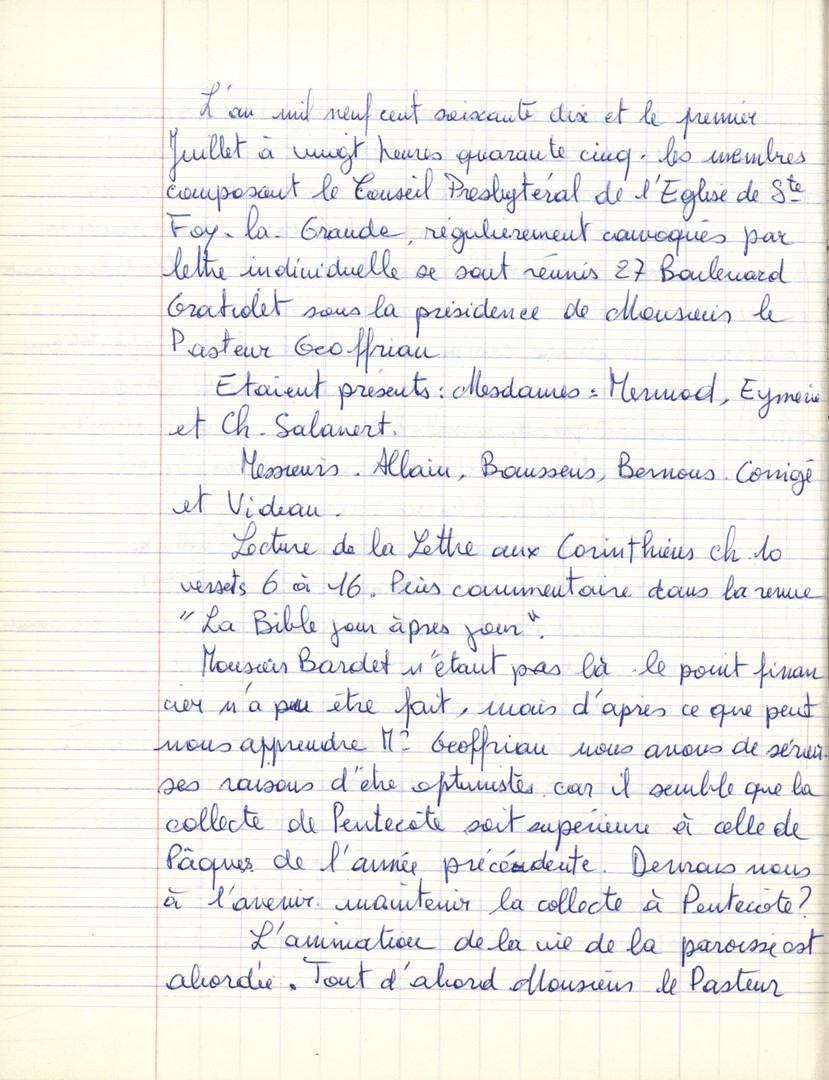 L'an mil neuf cent soixante dix et le premier
Juillet à vingt heures quarante cinq. les membres
composant le Conseil Presbytéral de l'Eglise de Ste
Foy-la-Grande, régulièrement convoqués par
lettre individuelle se sont réunis 27 Boulevard
Gratiolet sous la présidence de Monsieur le
Pasteur Geoffriau
Etaient présents : Mesdames : Mermod, Eymerie
et Ch. Salanert.
Messieurs . Allain, Baussens, Bernous. Corrigé
et Videau.
Lecture de la Lettre aux Corinthiens ch. 10
versets 6 à 16. Puis commentaire dans la revue
"La Bible jour àpres jour".
Monsieur Bardet n'étant pas là le point finan
cier n'a pu être fait, mais d'après ce que peut
nous apprendre Mr Geoffriau nous avons de sérieu
ses raisons d'être optimistes car il semble que la
collecte de Pentecôte soit supérieure à celle de
Pâques de l'année précédente. Devrons nous
à l'avenir maintenir la collecte à Pentecôte?
L'animation de la vie de la paroisse est
abordée. Tout d'abord Monsieur le Pasteur